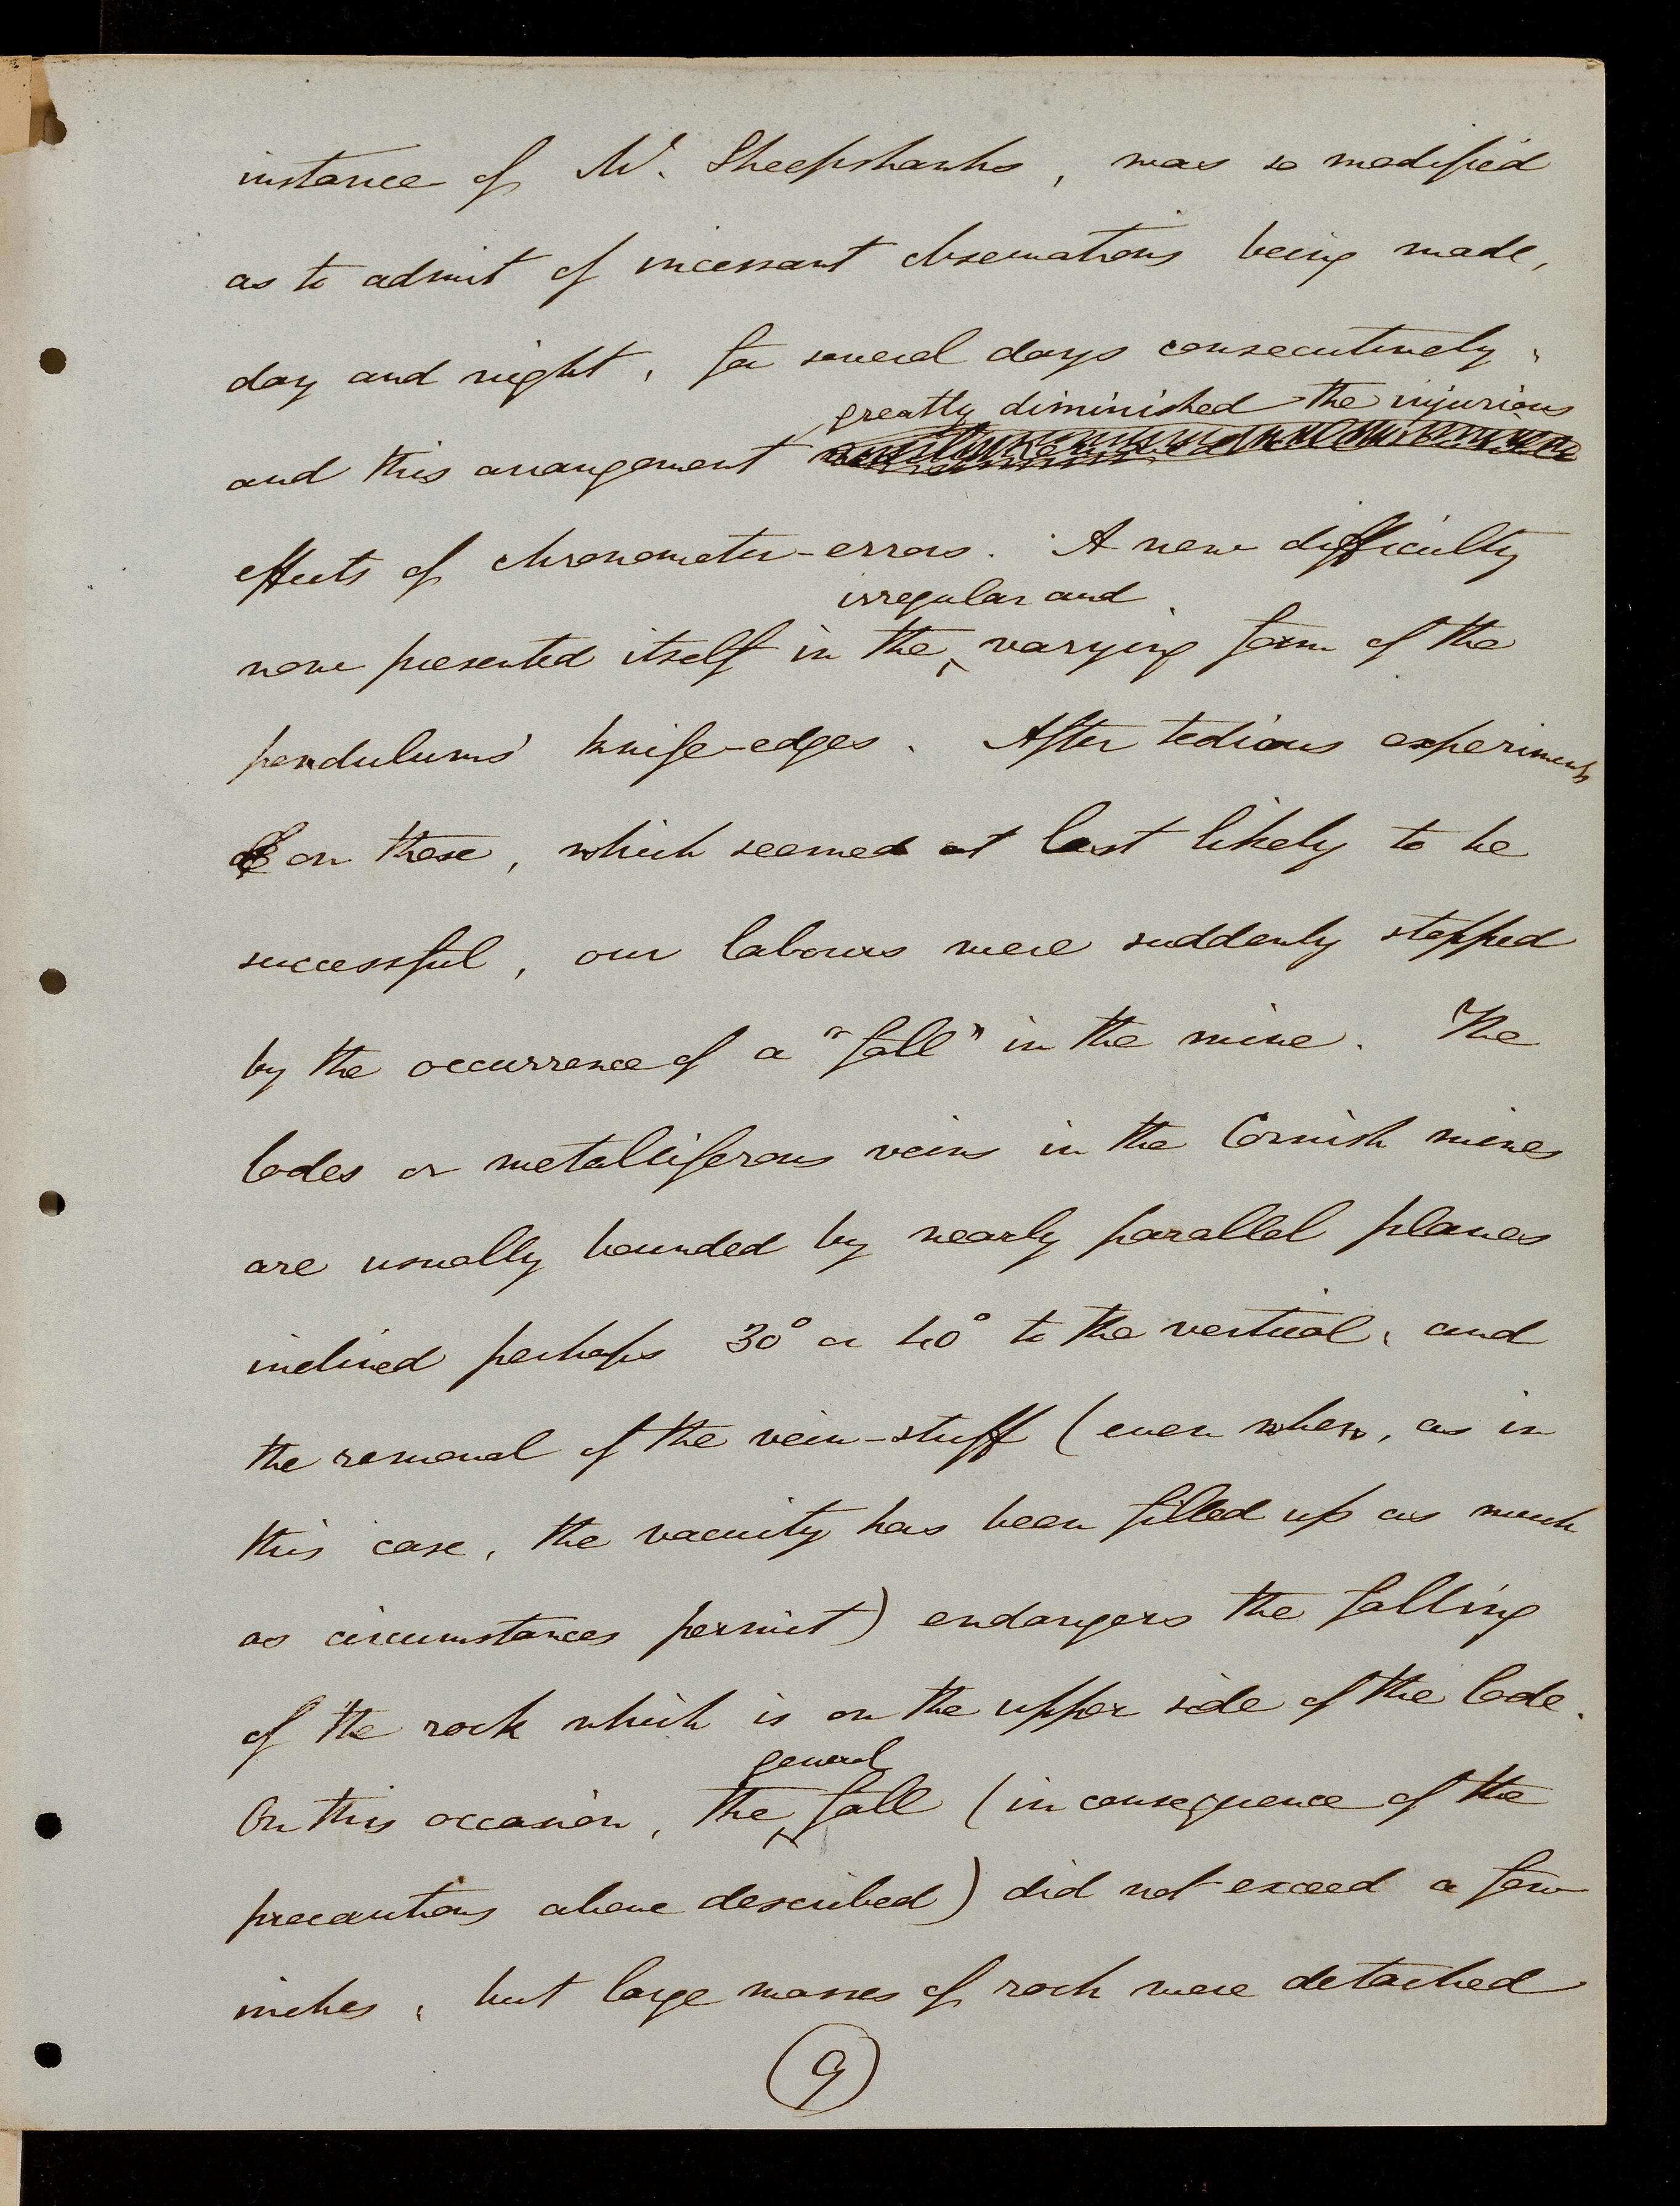 instance of Mr. Sheepshanks, was so modified
as to admit of incessant observations being made,
day and night, for several days consecutively,
greatly diminished the injurious
and this arrangement
effects of chronometer-errors. A new difficulty
irregular and
now presented itself in the ‸ varying form of the
pendulums' knife-edges. After tedious experiments
on these, which seemed at last likely to be
successful, our labours were suddenly stopped
by the occurrence of a "fall" in the mine. The
lodes or metalliferous veins in the Cornish mines
are usually bounded by nearly parallel planes
inclined perhaps 30° or 40° to the vertical, and
the removal of the vein-stuff (even when, as in
this case, the vacuity has been filled up as much
as circumstances permit) endangers the falling
of the rock which is on the upper side of the lode.
general
On this occasion, the ‸ fall (in consequence of the
precautions above described) did not exceed a few
inches, but large masses of rock were detached
9